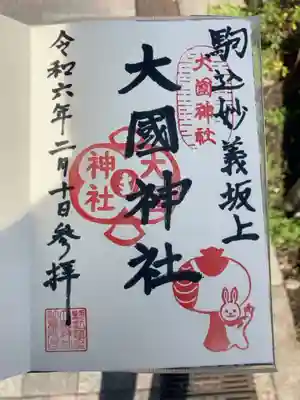 駒込妙義坂上
大國神社
大國神社
大
神社
令和六年二月十日参拝